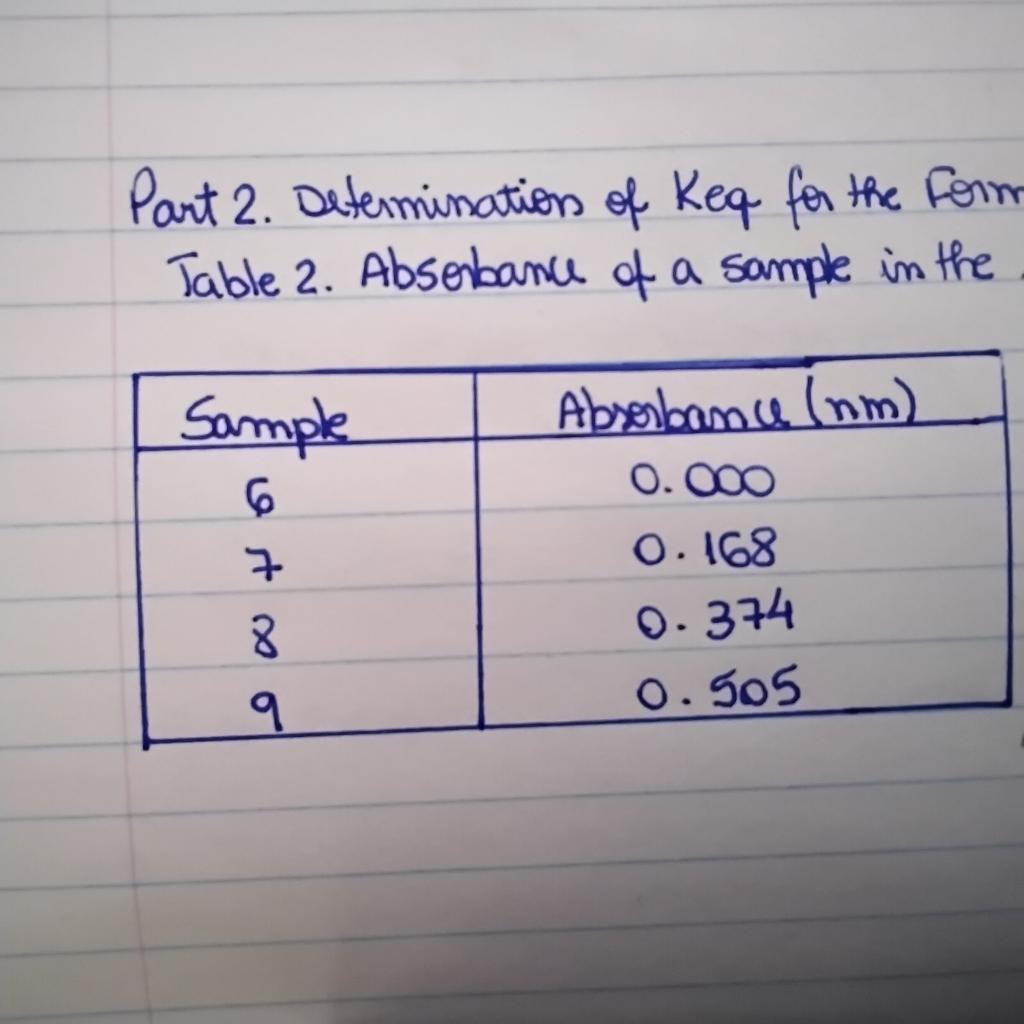 Part 2. Determination of Keq for the Form
Table 2. Absorbance of a sample in the
Sample Absorbance (nm)
6 0.000
7 0.168
8 0.374
9 0.505